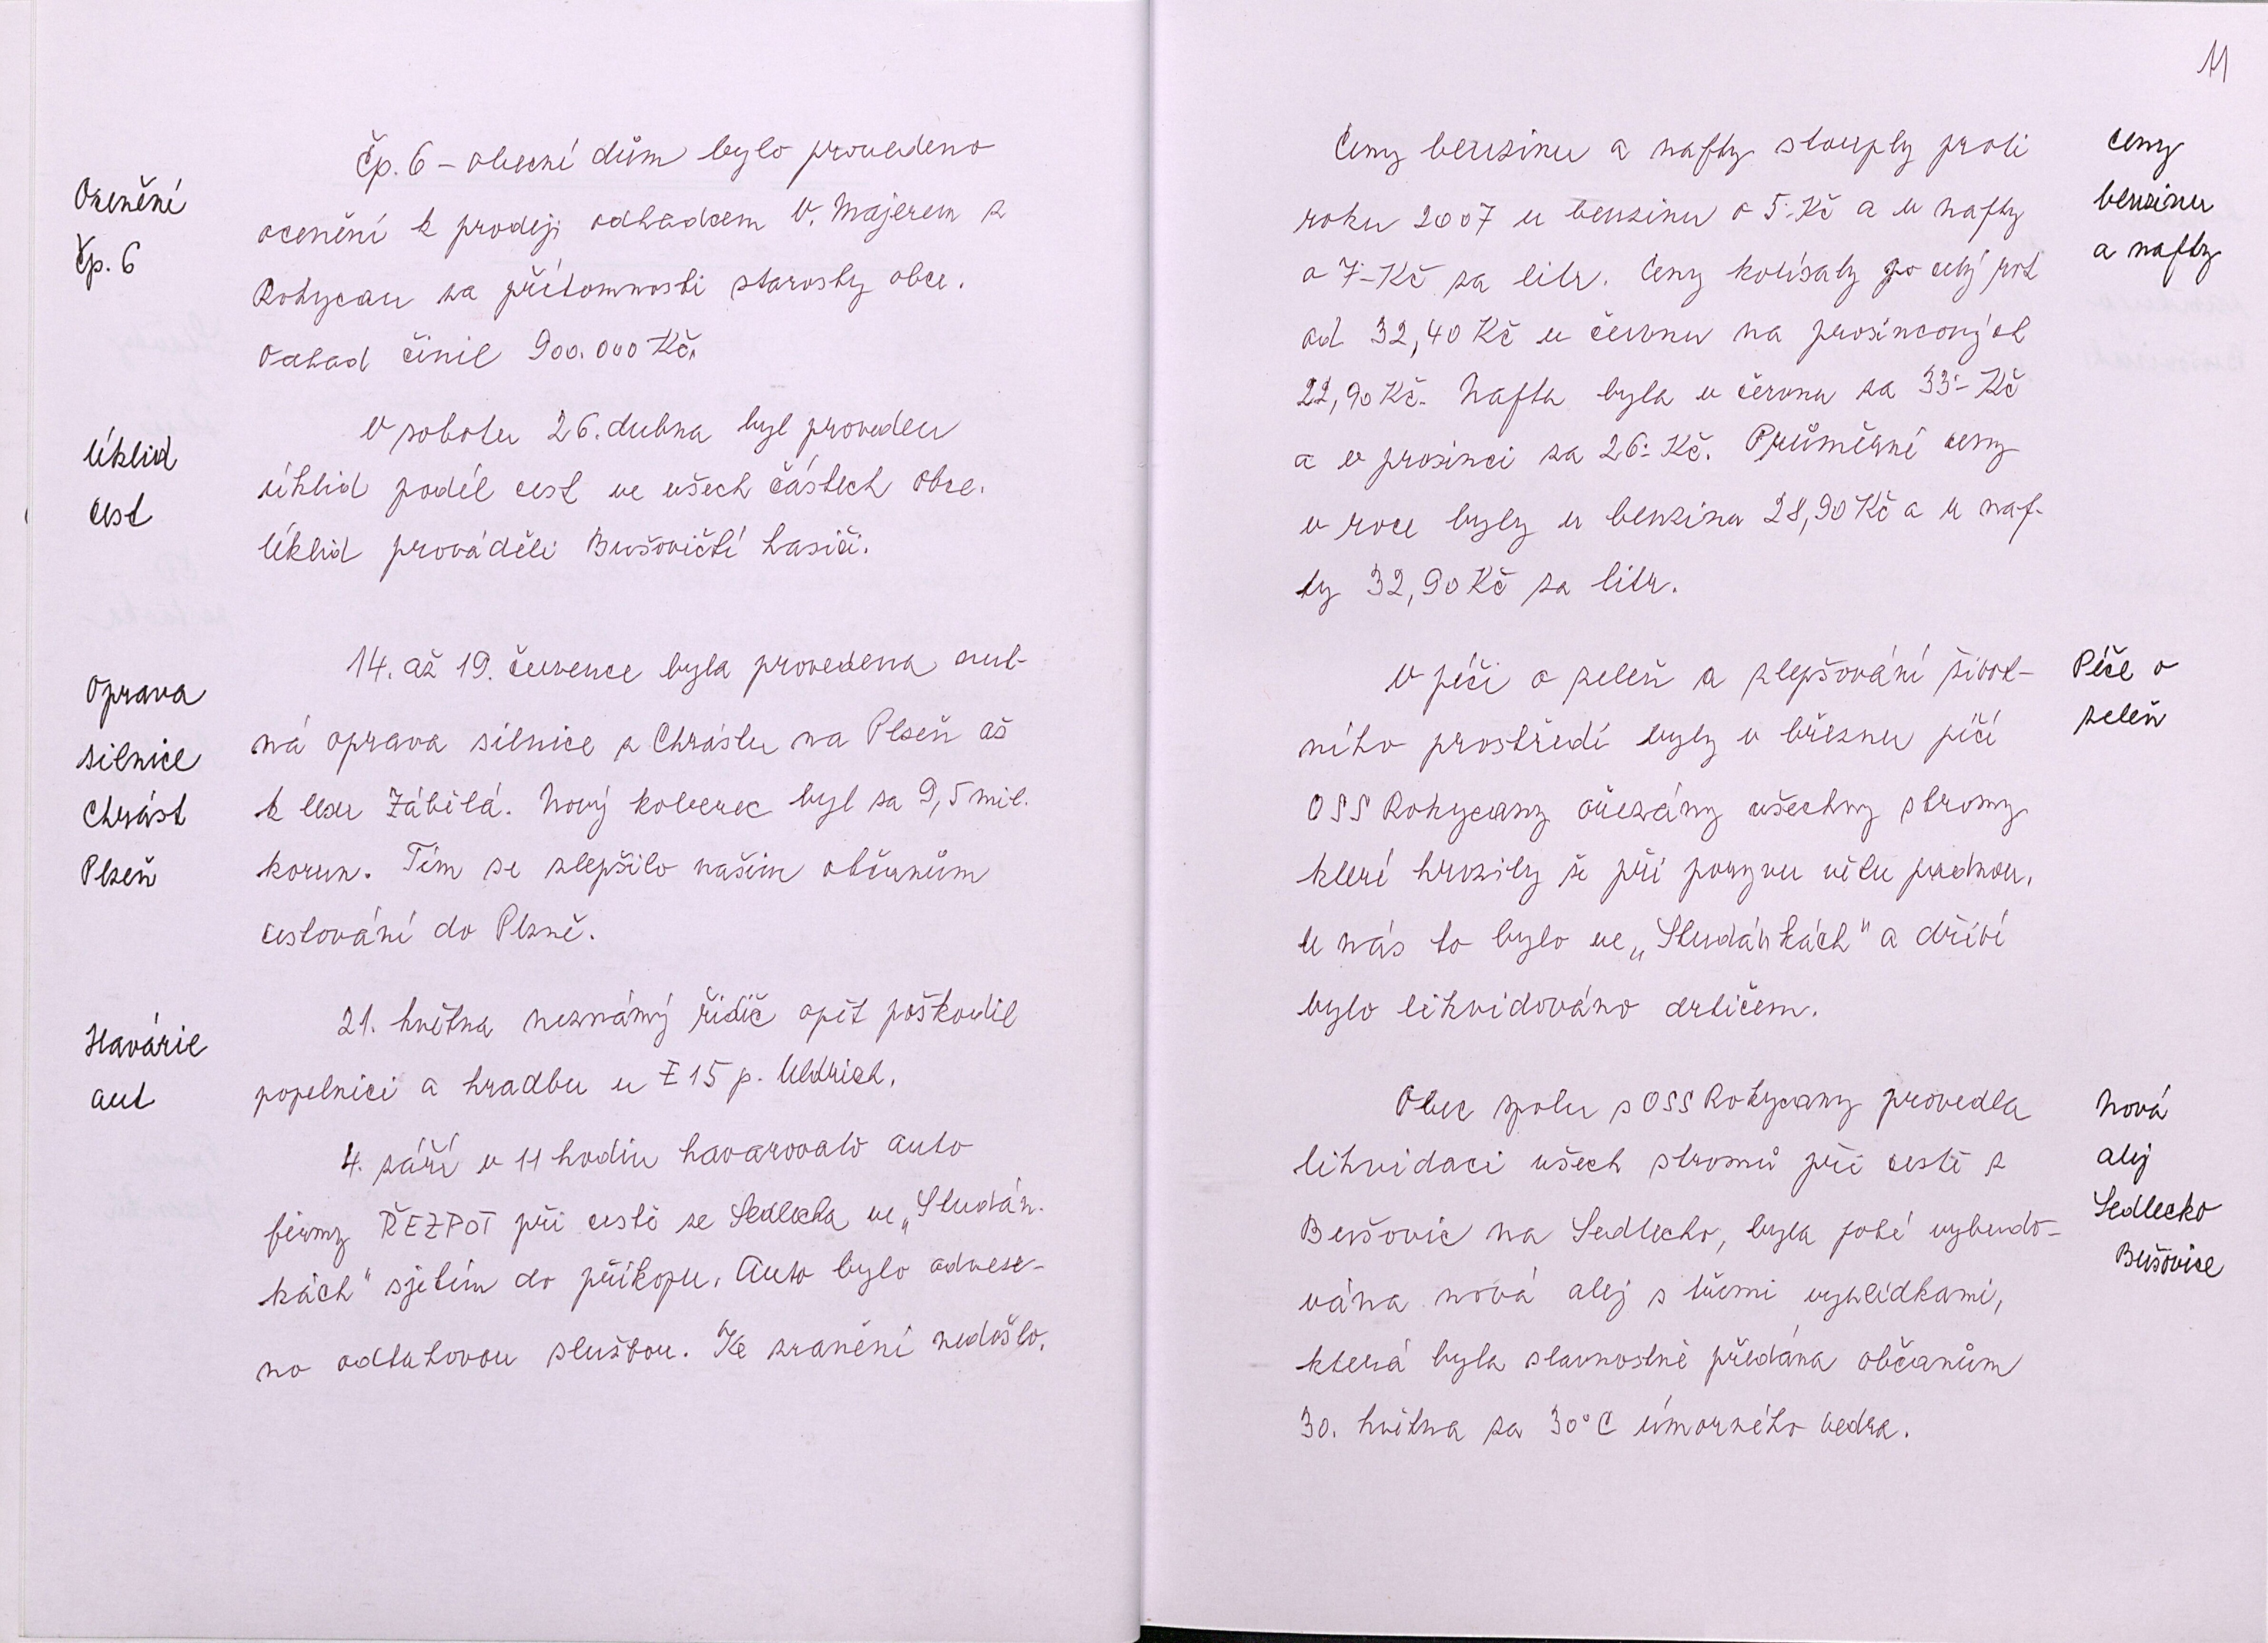 Ocenění
čp. 6
Čp. 6 – obecní dům bylo provedeno
ocenění k prodeji odhadcem V. Majerem z
Rokycan za přítomnosti starosty obce.
Odhad činil 900.000 Kč.
Úklid
cest
V sobotu 26. dubna byl proveden
úklid podél cest ve všech částech obce.
Úklid prováděli Bušovičtí hasiči.
Oprava
silnice
Chrást
Plzeň
14. až 19. července byla provedena nut-
ná oprava silnice z Chrástu na Plzeň až
k lesu Zábělá. Nový koberec byl za 9,5 mil.
korun. Tím se zlepšilo našim občanům
cestování do Plzně.
Havárie
aut
21. května neznámý řidič opět poškodil
popelnici a hradbu u E 15 p. Uldrich.
4. září v 11 hodin havarovalo auto
firmy ŘEZPOT při cestě ze Sedlecka ve „Studán-
kách" sjetím do příkopu. Auto bylo odveze-
no odtahovou službou. Ke zranění nedošlo.
11
Ceny benzinu a nafty stouply proti
roku 2007 u benzinu o 5.-Kč a u nafty
o 7-Kč za litr. Ceny kolísaly po celý rok
od 32,40 Kč v červnu na prosincových
22,90 Kč. Nafta byla v červnu za 33.- Kč
a v prosinci za 26.- Kč. Průměrné ceny
v roce byly u benzinu 28,90 Kč a u naf-
ty 32,90 Kč za litr.
Ceny
benzinu
a nafty
V péči o zeleň a zlepšování život-
ního prostředí byly v březnu péčí
OSS Rokycany ořezány všechny stromy
které hrozily že při poryvu větu padnou.
U nás to bylo ve „Studánkách" a dříví
bylo likvidováno drtičem.
Péče o
zeleň
Obec spolu s OSS Rokycany provedla
likvidaci všech stromů při cestě z
Bušovic na Sedlecko, byla poté vybudo-
vána nová alej s třemi vyhlídkami,
která byla slavnostně předána občanům
30. května za 30°C úmorného vedra.
Nová
alej
Sedlecko
Bušovice